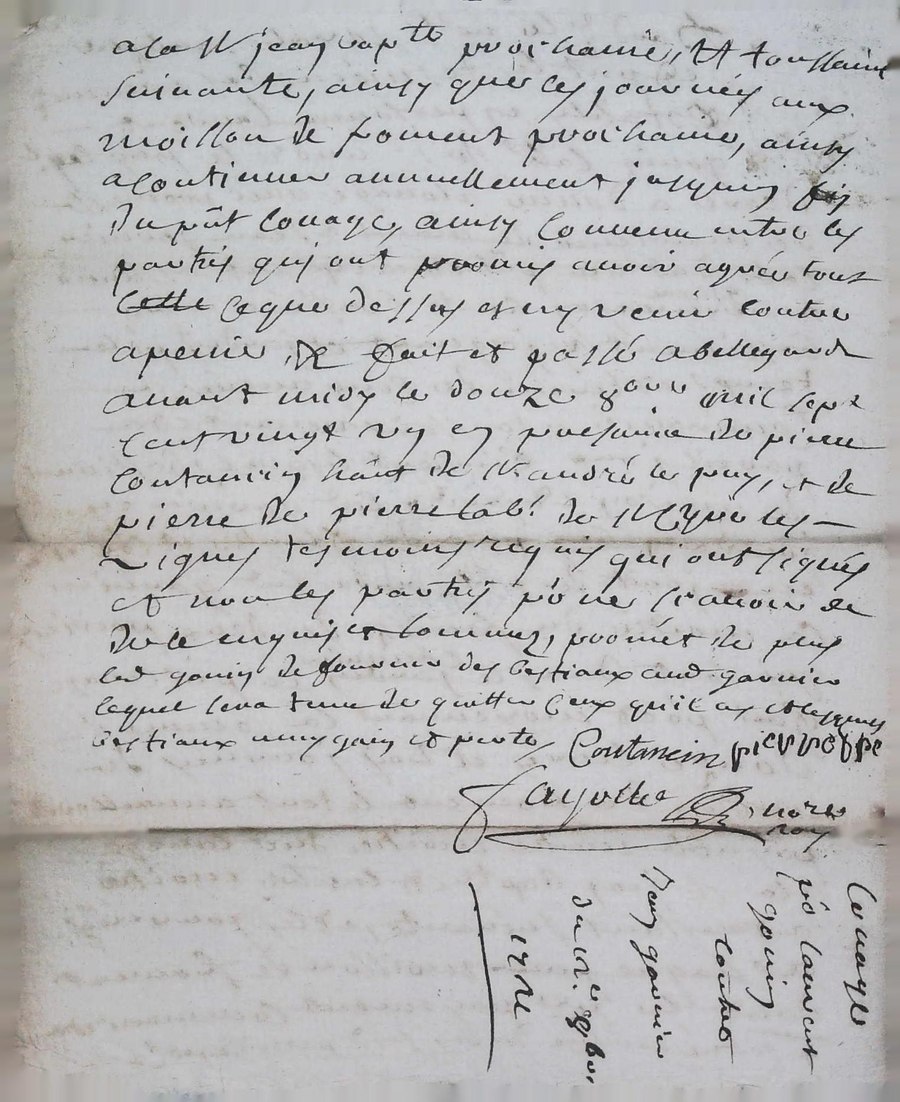 a la St jean bapte prochaine, Et toussains
suivante, ainsy que les journées aux
moisson de froment prochaine, ainsy
a continuer annuellement jusques fin
du pnt louage, ainsy convenu entre les
partyes qui ont promis avoir agréé tout
cette ce que dessus et ny venir contre
a penne de fait et passé a bellegarde
avant midy le douze 8bre mil sept
cent vingt un en presance de pierre
Coutancin hant de St andré le puy, et de
pierre de pierre labr de St Cyr les
vignes tesmoins requis qui ont signés
et non les partyes pour ne scavoir de
de ce enquis et sommez, promet de plus
led gouin de fournir des bestiaux aud garnier
lequel sera tenu de quitter ceux qu'il a et lesquels
bestiaux a my gain et perte
Coutancin pierre
Fayolle nore
roy
Louage
po laurent
gouin
contre
Jean garnier
du 12e 8bre
1721